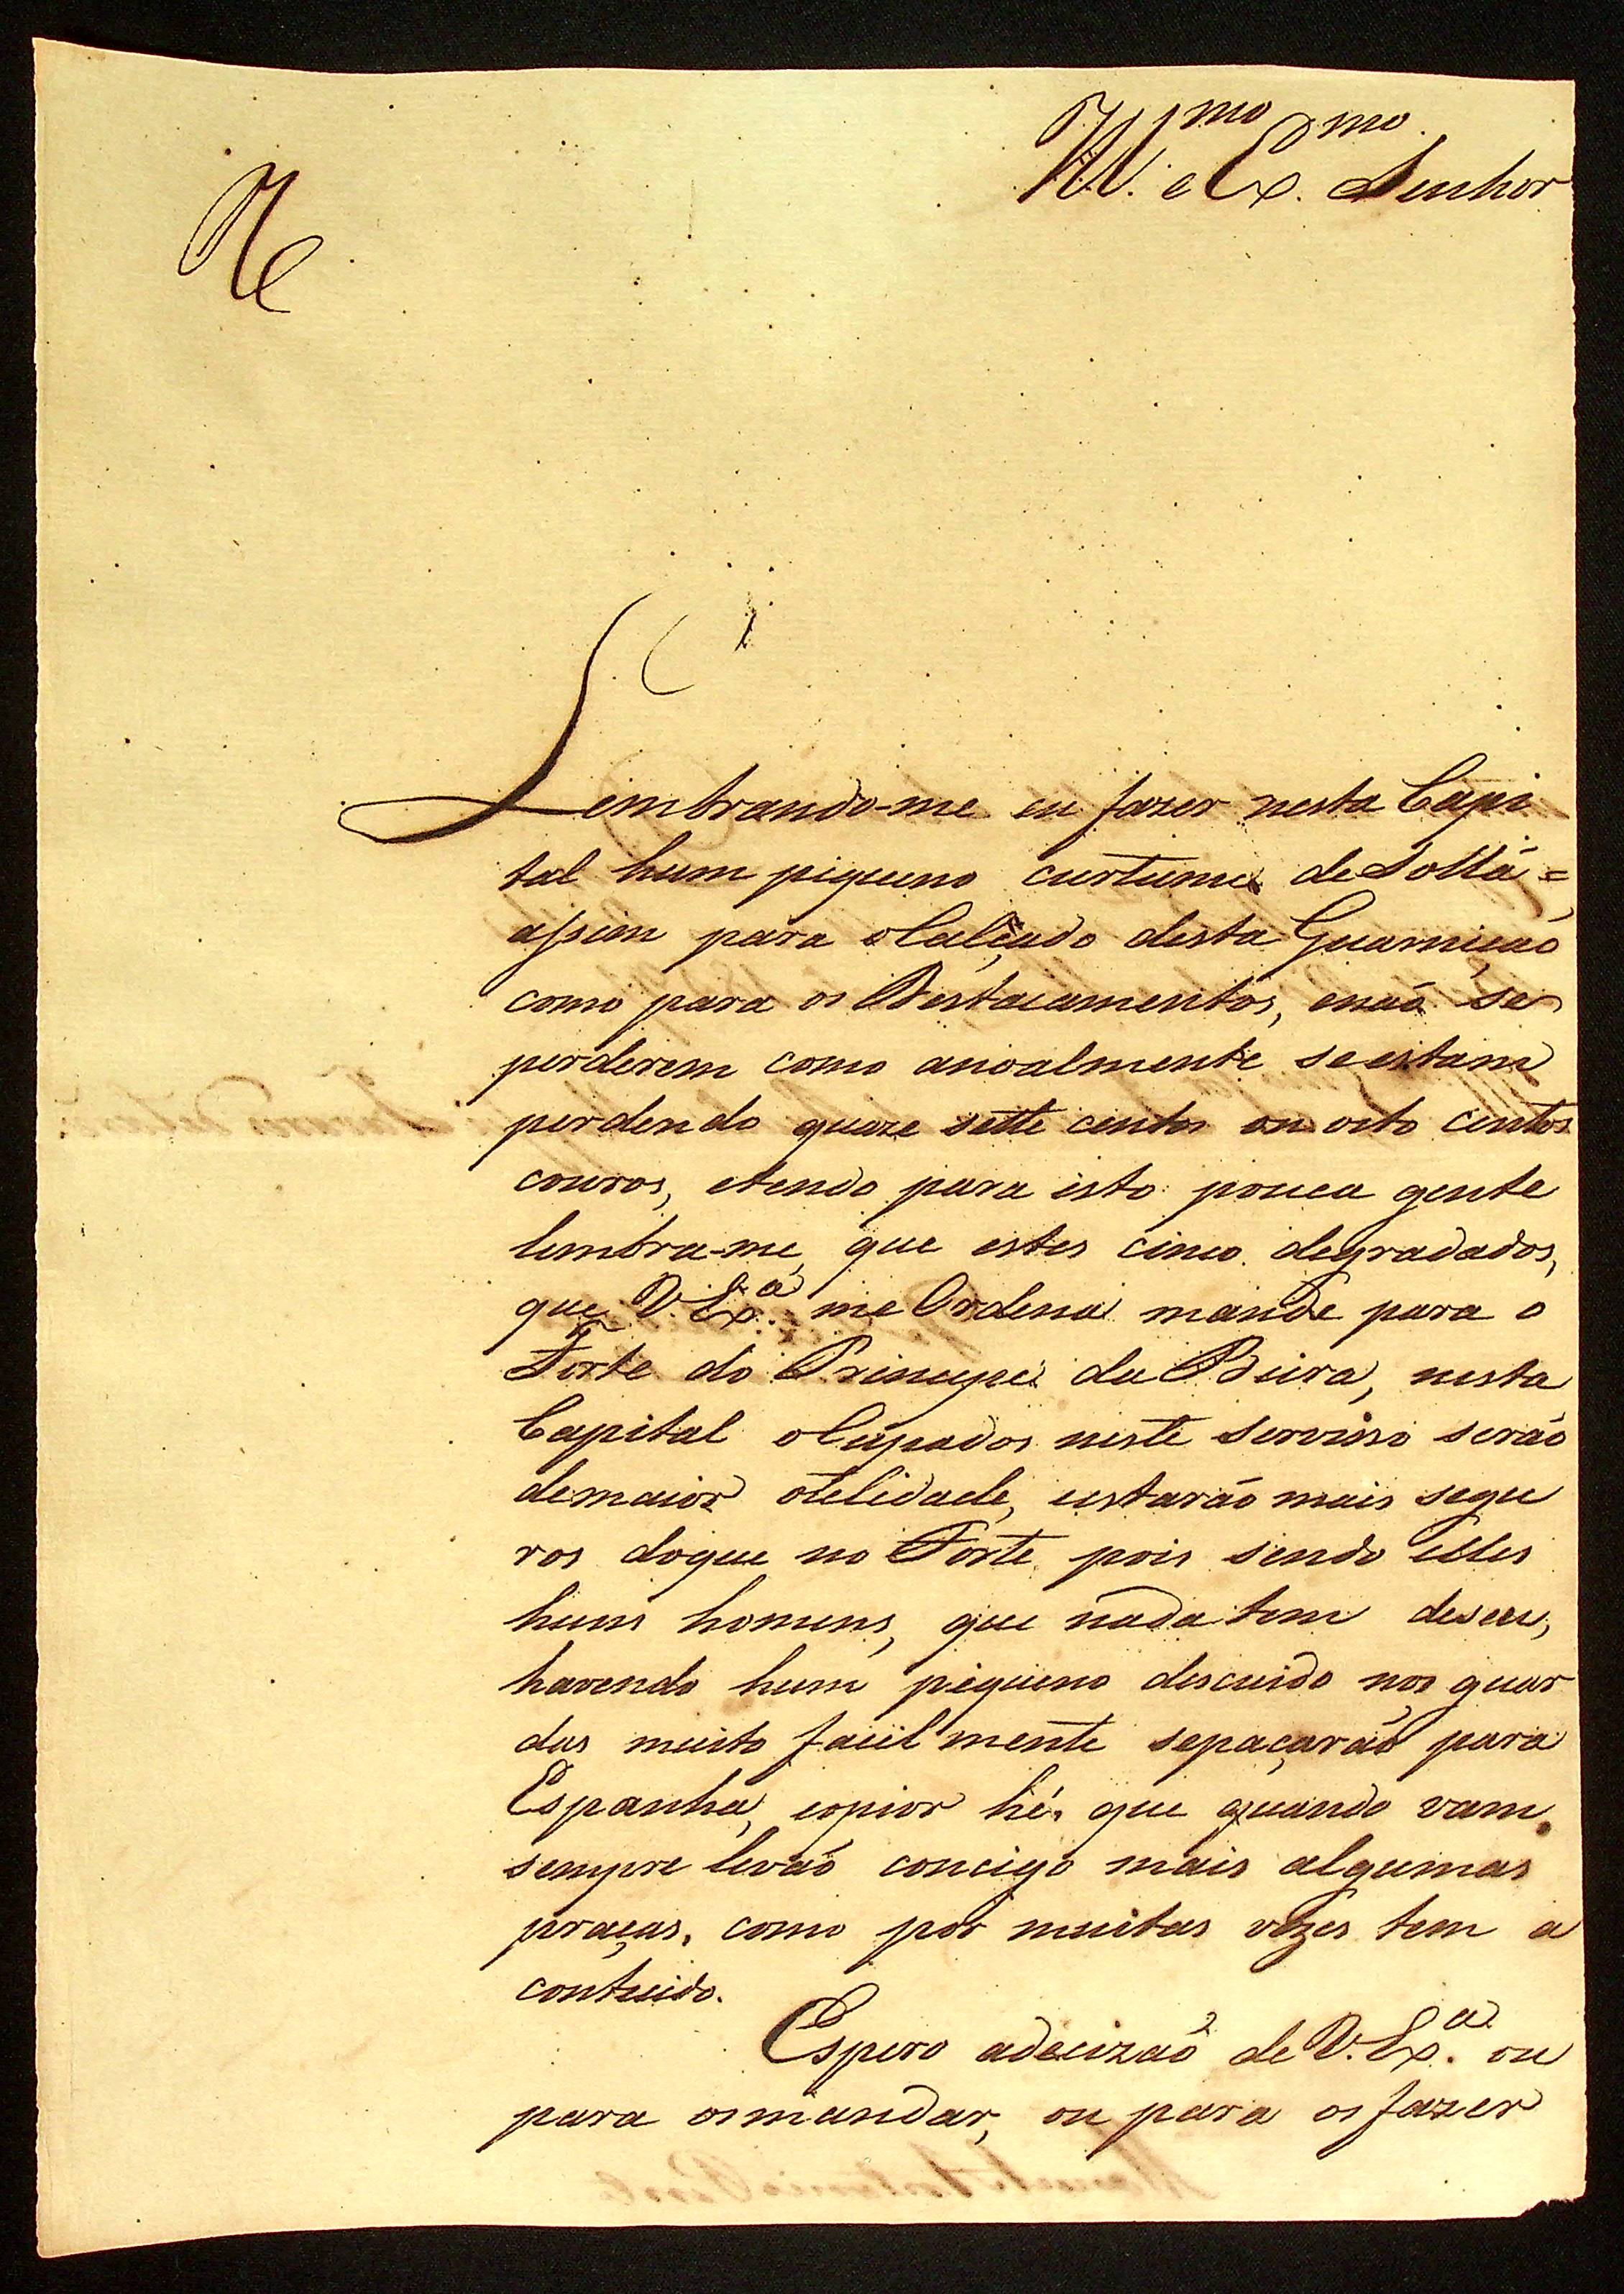 Ill.mo e Ex.mo Senhor
Lembrando-me eu fazer nesta Capi
tal hum piqueno curtume de Sollá =
assim para o Calçado desta Guarnição
como para os Destacamentos, enaõ se
perderem como anoalmente seestam
perdendo quaze sette centos ou outo centos
couros, etendo para isto pouca gente
lembra-me, que estes cinco degradados,
que V. Ex.ª me Ordena mande para o
Forte do Principe da Beira, nesta
Capital oCupados neste servisso seráõ
demaior otelidade, eestaráõ mais segu
ros doque no Forte pois sendo elles
huns homens, que nada tem deseu,
havendo hum piqueno descuido nos guar
das muito facil mente sepaçaráõ para
Espanha, eopior hé, que quando vam,
sempre leváõ concigo mais algumas
praças, como por muitas vezes tem a
contecido.
Espero adecizaõ de V. Ex.ª ou
para osmandar, ou para os fazer